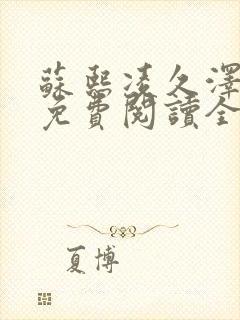 蘇熙凌久澤
免費閱讀全
夏博